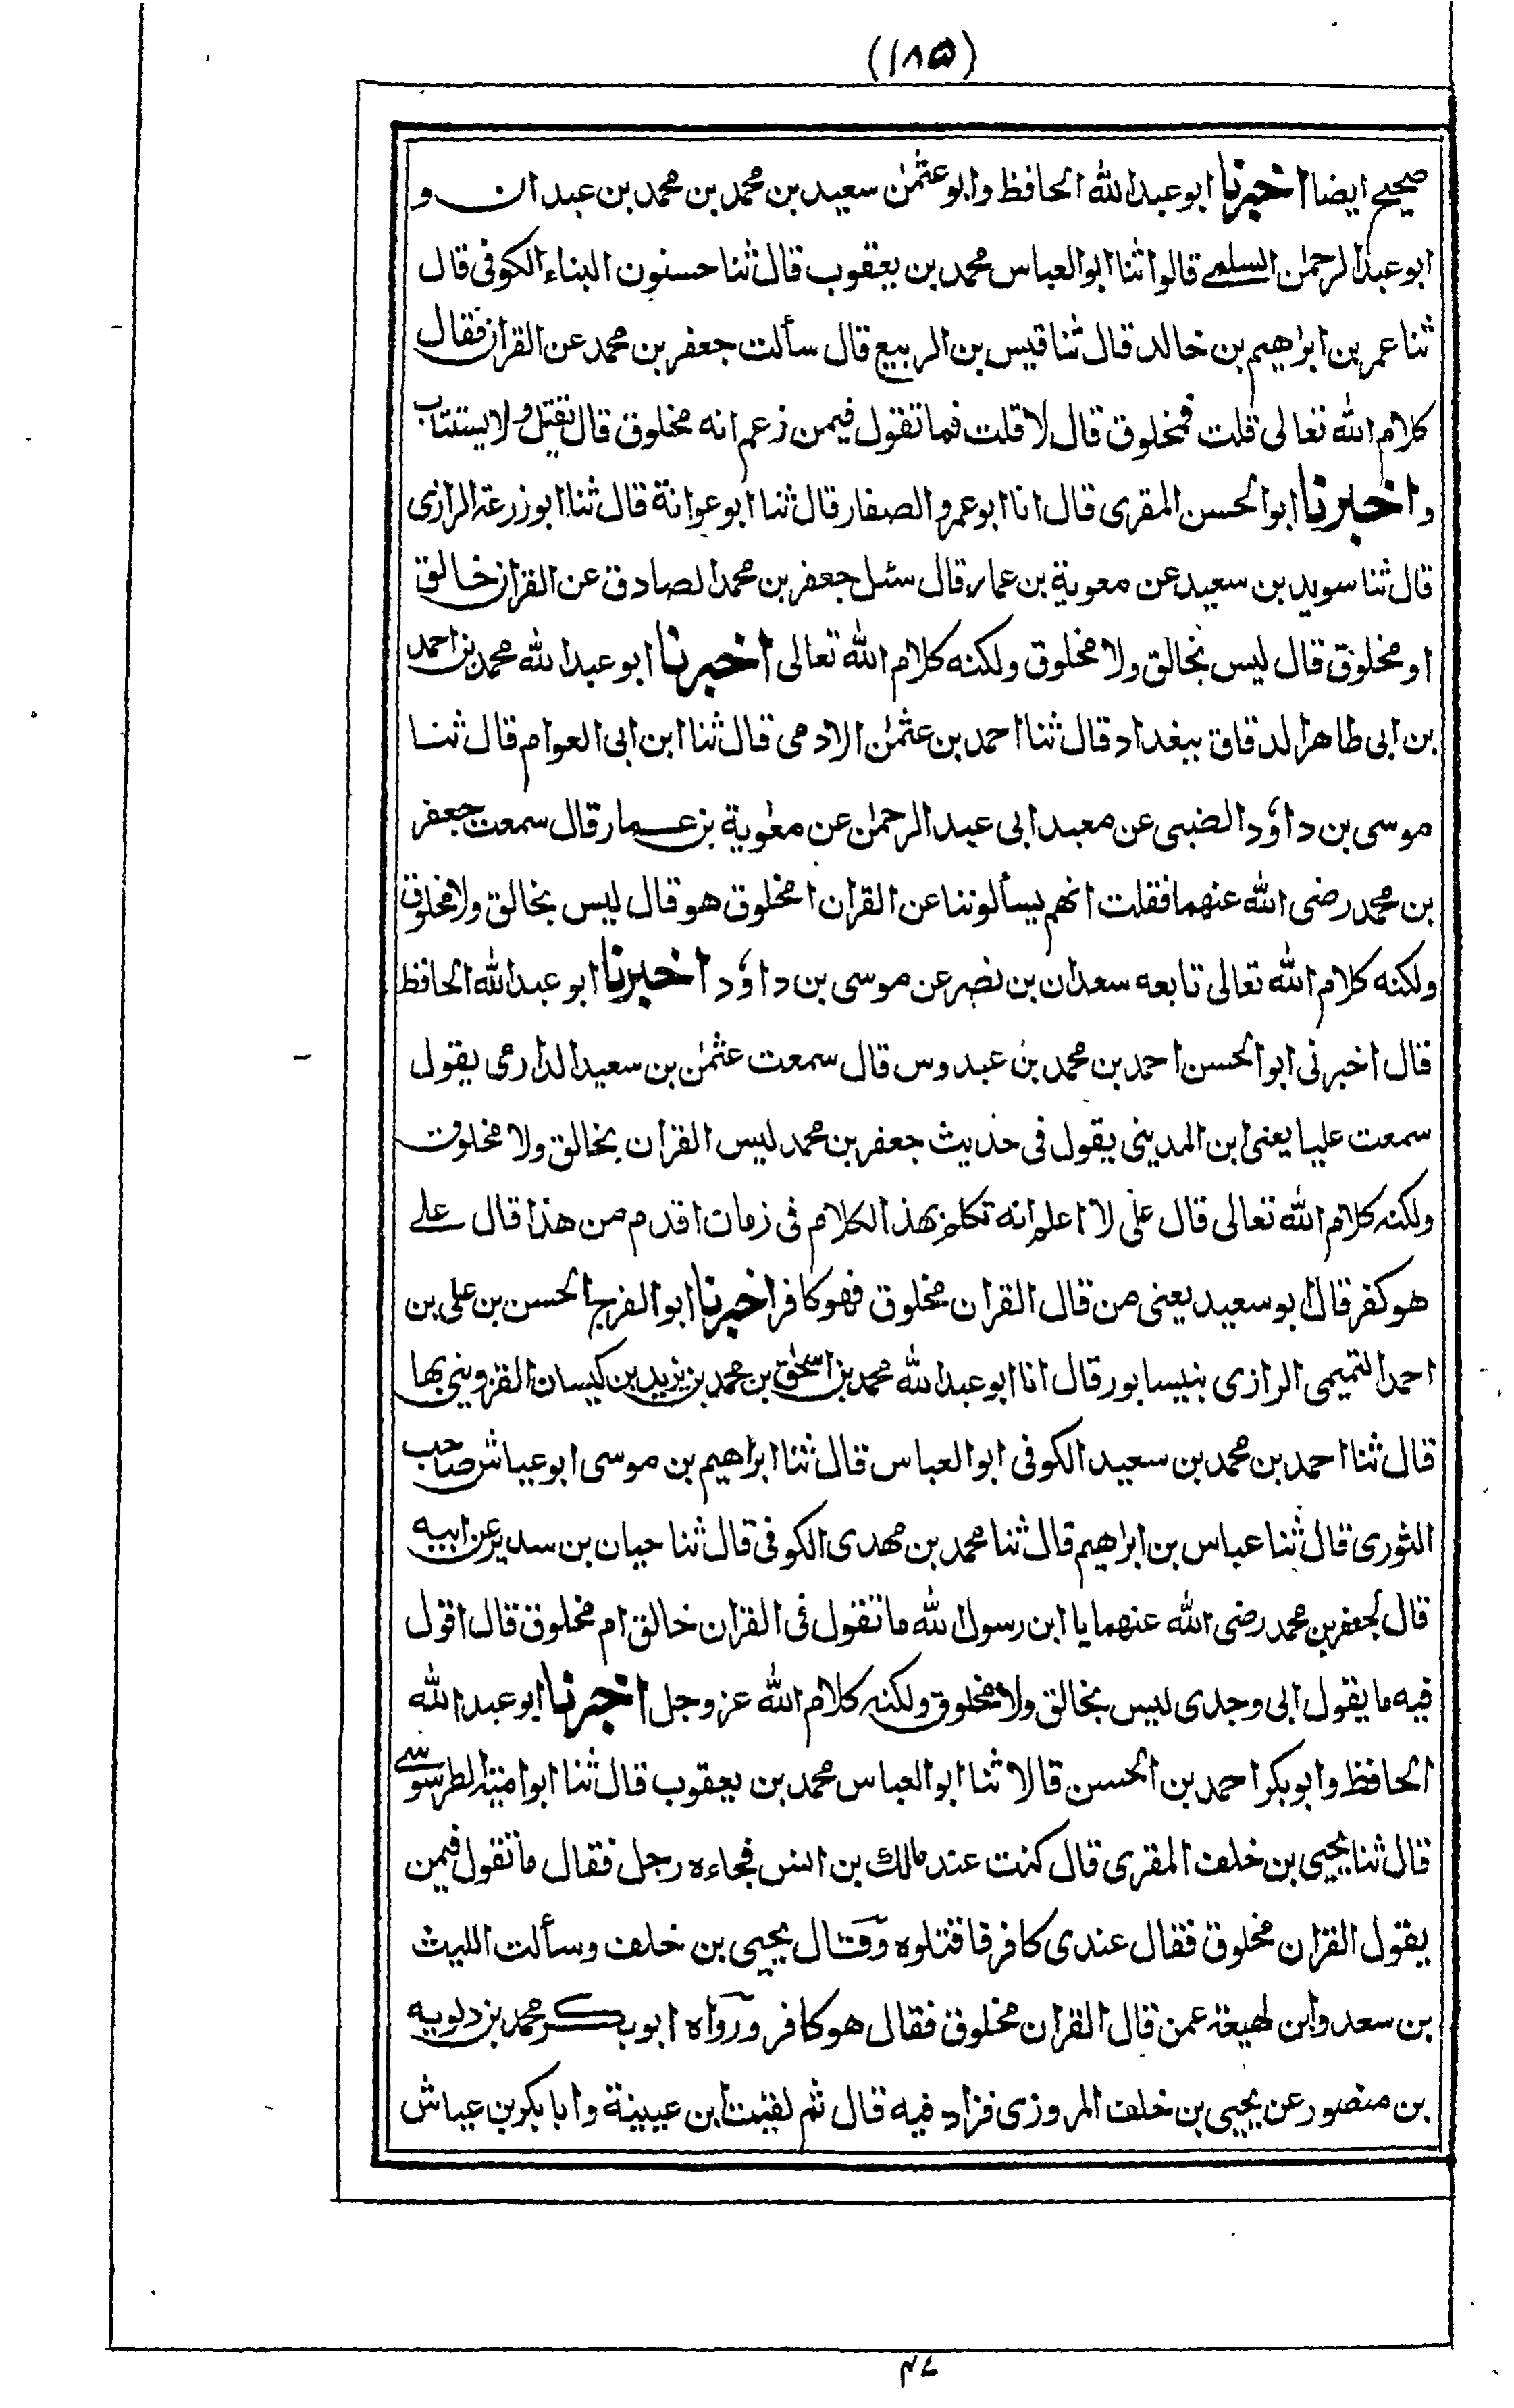 (١٨٥)
صحيح ايضا اخبرنا ابو عبد الله الحافظ وابو عثمٰن سعيد بن محمد بن محمد بن عبدان و
ابو عبد الرحمٰن السلمے قالوا ثنا ابو العباس محمد بن يعقوب قال ثنا حسنون البناء الكوفى قال
ثنا عمر بن ابراهيم بن خالد قال ثنا قيس بن الربيع قال سألت جعفر بن محمد عن القران فقال
كلام الله تعالى قلت فمخلوق قال لا قلت فما تقول فيمن زعم انه مخلوق قال يقتل ولا يستتاب
واخبرنا ابو الحسن المقرى قال انا ابو عمرو الصفار قال ثنا ابو عوانة قال ثنا ابو زرعة الرازى
قال ثنا سويد بن سعيد عن معوية بن عمار قال سئل جعفر بن محمد الصادق عن القران خالق
او مخلوق قال ليس بخالق ولا مخلوق ولكنه كلام الله تعالى اخبرنا ابو عبد الله محمد بن احمد
بن ابى طاهر الدقاق ببغداد قال ثنا احمد بن عثمٰن الادمى قال ثنا ابن ابى العوام قال ثنا
موسى بن داؤد الضبى عن معبد ابى عبد الرحمٰن عن معٰوية بن عمار قال سمعت جعفر
بن محمد رضى الله عنهما فقلت انهم يسألوننا عن القران امخلوق هو قال ليس بخالق ولا مخلوق
ولكنه كلام الله تعالى تابعه سعدان بن نصر عن موسى بن داؤد اخبرنا ابو عبد الله الحافظ
قال اخبرنى ابو الحسن احمد بن محمد بن عبدوس قال سمعت عثمٰن بن سعيد الدارمى يقول
سمعت عليا يعنى ابن المدينى يقول فى حديث جعفر بن محمد ليس القران بخالق ولا مخلوق
ولكنه كلام الله تعالى قال على لا اعلم انه تكلم بهذا الكلام فى زمان اقدم من هذا قال علے
هو كفر قال ابو سعيد يعنى من قال القران مخلوق فهو كافر اخبرنا ابو الفرج الحسن بن على بن
احمد التميمى الرازى بنيسابور قال انا ابو عبد الله محمد بن اسحٰق بن محمد بن يزيد بن كيسان القزوينى بها
قال ثنا احمد بن محمد بن سعيد الكوفى ابو العباس قال ثنا ابراهيم بن موسى ابو عياش صاحب
الثورى قال ثنا عباس بن ابراهيم قال ثنا محمد بن مهدى الكوفى قال ثنا حيان بن سدير عن ابيه
قال لجعفر بن محمد رضى الله عنهما يا ابن رسول الله ما تقول فى القران خالق ام مخلوق قال اقول
فيه ما يقول ابى وجدى ليس بخالق ولا مخلوق ولكنه كلام الله عز وجل اخبرنا ابو عبد الله
الحافظ وابو بكر احمد بن الحسن قالا ثنا ابو العباس محمد بن يعقوب قال ثنا ابو امية الطرسوسے
قال ثنا يحيى بن خلف المقرى قال كنت عند مالك بن انس فجاءه رجل فقال ما تقول فيمن
يقول القران مخلوق فقال عندى كافر فاقتلوه وقال يحيى بن خلف وسألت الليث
بن سعد وابن لهيعة عمن قال القران مخلوق فقال هو كافر ورواه ابو بكر محمد بن دلويه
بن منصور عن يحيى بن خلف المروزى فزاد فيه قال ثم لقيت ابن عيينة وابا بكر بن عياش